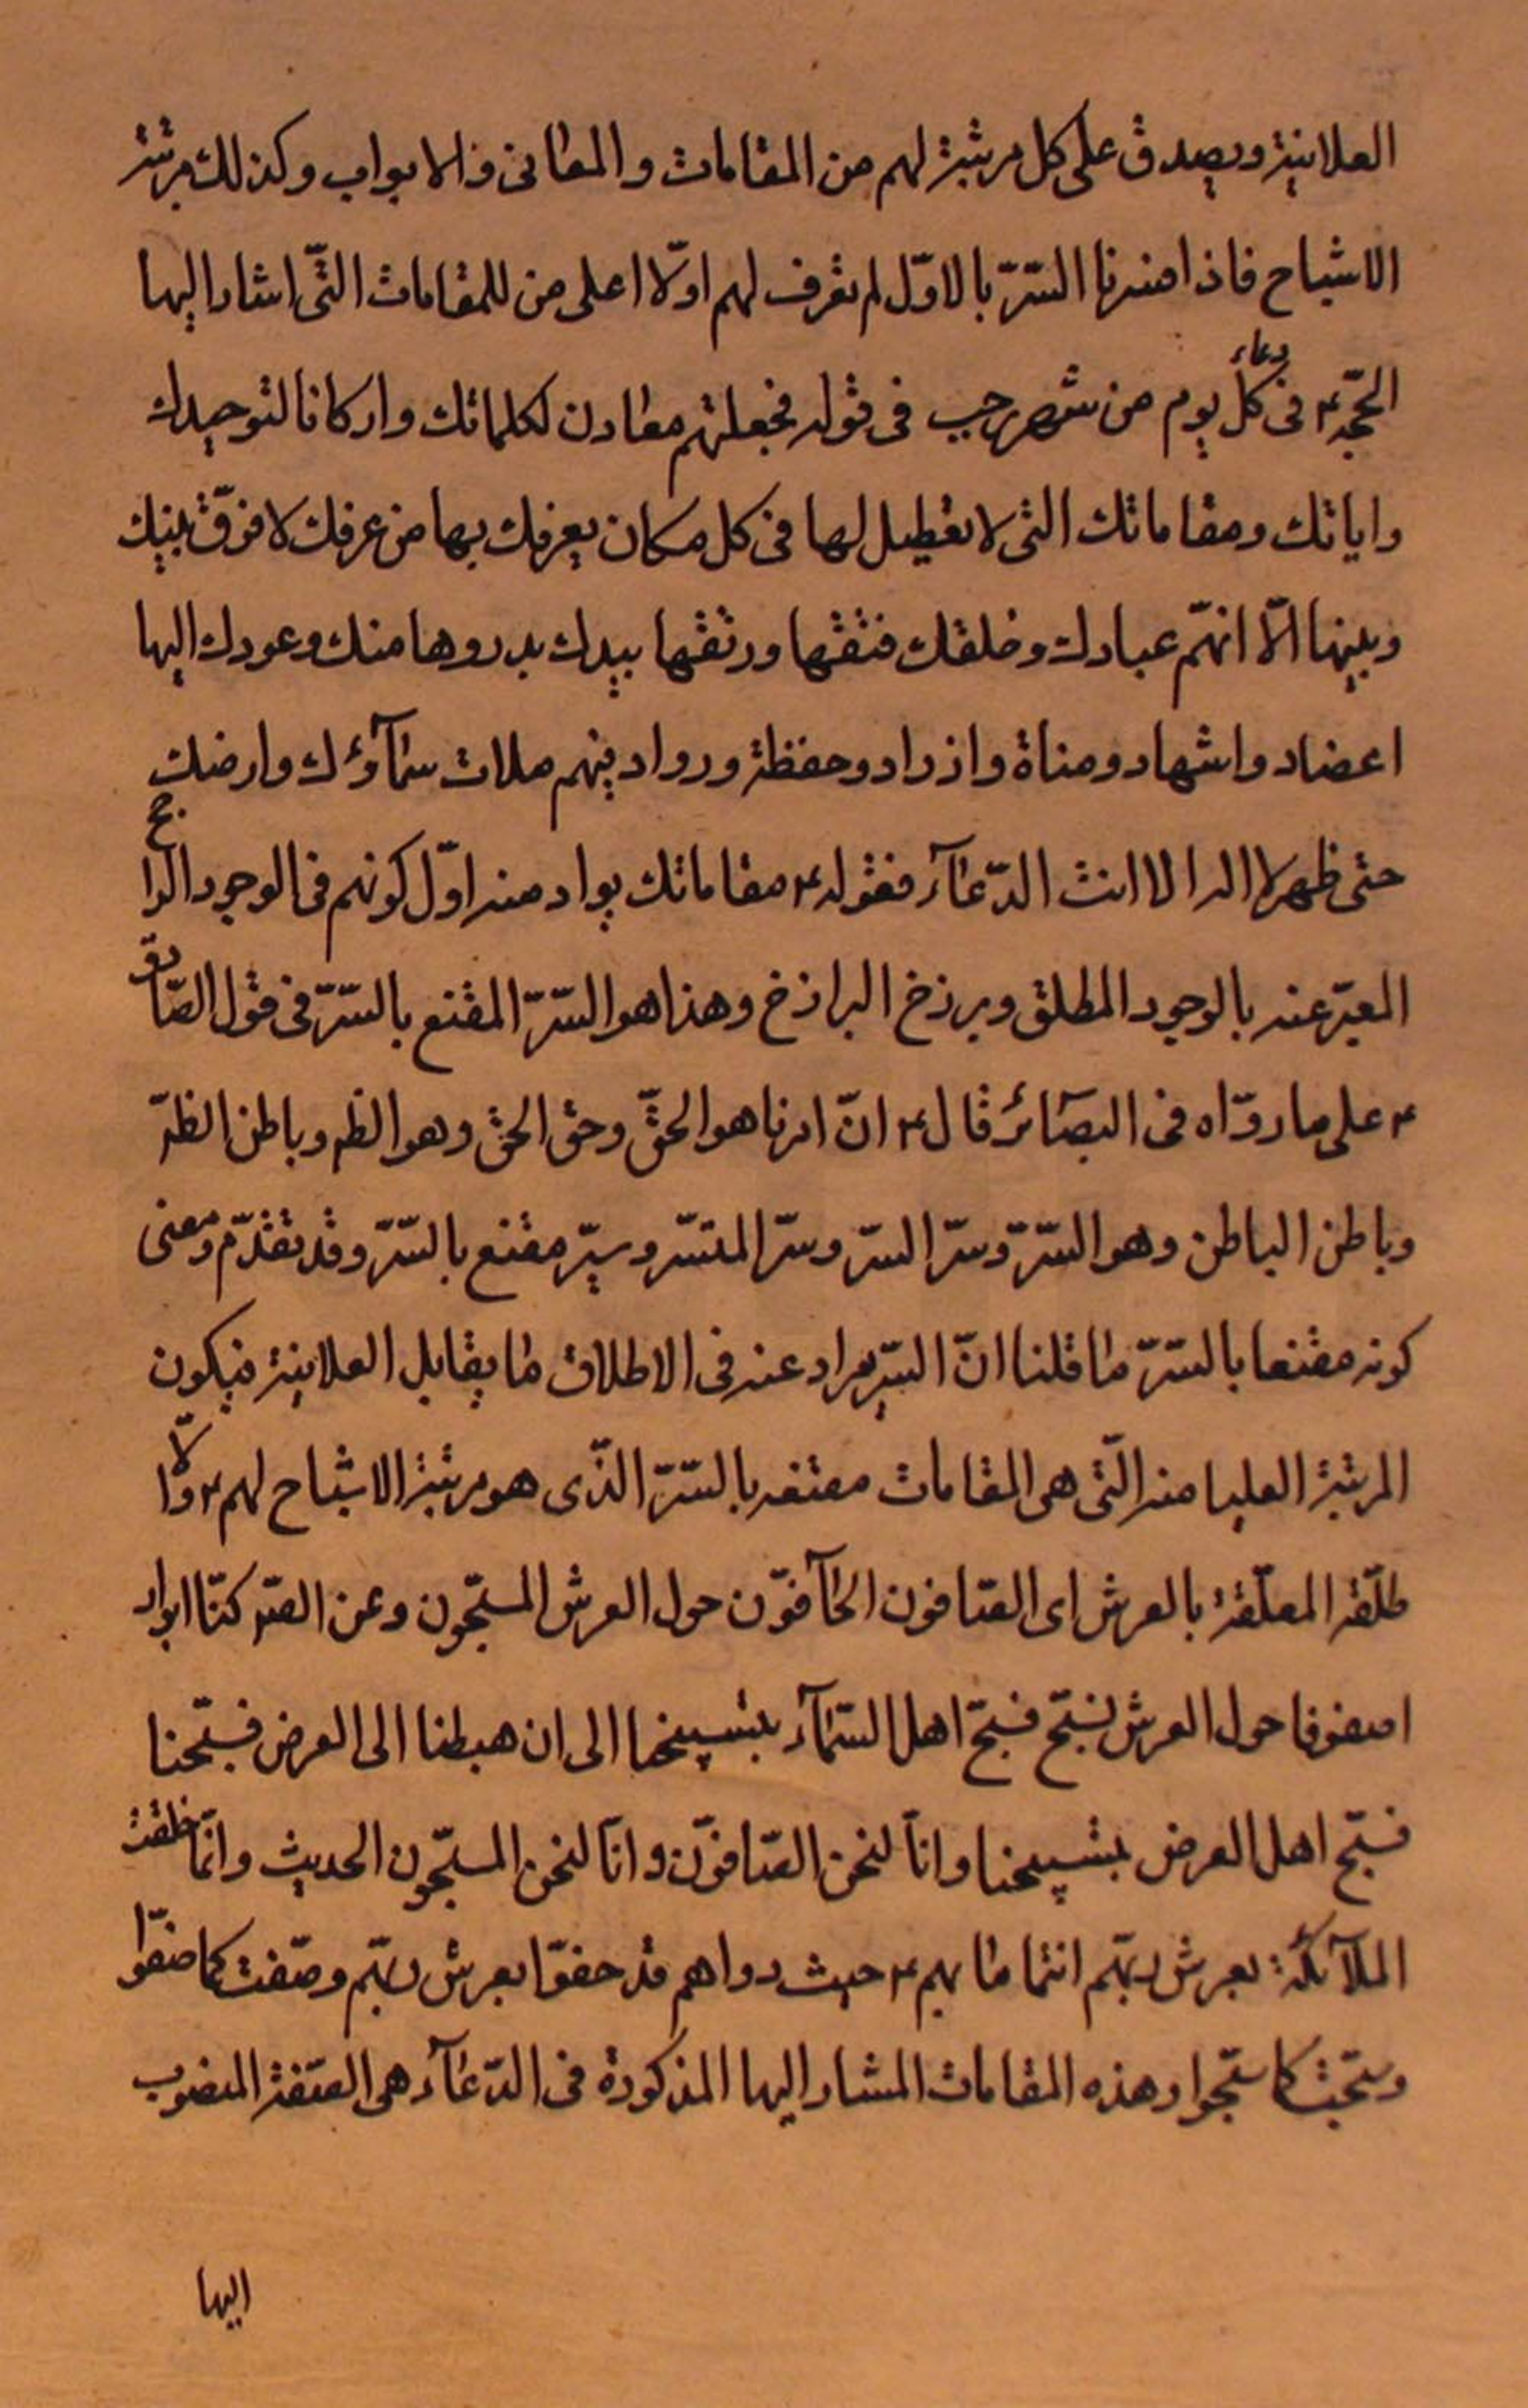 العلانية ويصدق على كل مرتبة لهم من المقامات والمعانى والابواب وكذلك مرتبة
الاشباح فاذا فسرنا السّرّ بالاوّل لم نعرف لهم اوّلا اعلى من للمقامات التّى اشار اليها
الحجّة ع فى دعاء كل يوم من شهر رجب فى قوله فجعلتهم معادن لكلماتك واركانا لتوحيدك
واياتك ومقاماتك التى لا تعطيل لها فى كل مكان يعرفك بها من عرفك لا فرق بينك
وبينها الّا انهّم عبادك وخلقك فتقها ورتقها بيدك بدروها منك وعودك اليها
اعضاد واشهاد ومناة واذواد وحفظة ورواد فبهم ملات سمآؤك وارضك
حتى ظهر لا اله الا انت الدّعآء فقوله ع مقاماتك يراد منه اوّل كونهم فى الوجود الراجح
المعبّر عنه بالوجود المطلق وبرزخ البرازخ وهذا هو السّرّ المقنع بالسّرّ فى قول الصّادق
ع على ما روّاه فى البصآئر قال ع انّ امرنا هو الحقّ وحق الحق وهو الظه وباطن الظه
وباطن الباطن وهو السّرّ وسّرّ السّر وسّر المتسّر وسرّ مقنع بالسّرّ وقد تقدّم ومعنى
كونه مقنعا بالسّرّ ما قلنا انّ السّر يراد عنه فى الاطلاق ما يقابل العلانية فيكون
المرتبة العليا منه الّتى هى المقامات مقنعه بالسّرّ الذّى هو مرتبة الاشباح لهم ع اوّلا
طلّقة المعلّقة بالعرش اى الصّافون الحآفوّن حول العرش المسبّحون وعن الصّ كنّا انوار
اصفوفا حول العرش نسبّح فسبّح اهل السّمآء بتسبيحنا الى ان هبطنا الى العرض فسبّحنا
فسبّح اهل العرض بتسبيحنا وانّا لنحن الصّافوّن وانّا لنحن المسبّحون الحديث وانّما خلقت
الملآئكة بعرش ربّهم انتما ما بهم ع حيث رواهم قد حفوّا بعرش ربّهم وصّفت كما صفوّا
وسبّحت كما سبّحوا وهذه المقامات المشار اليها المذكورة فى الدّعآء هى الصّفة المنصوب
اليها